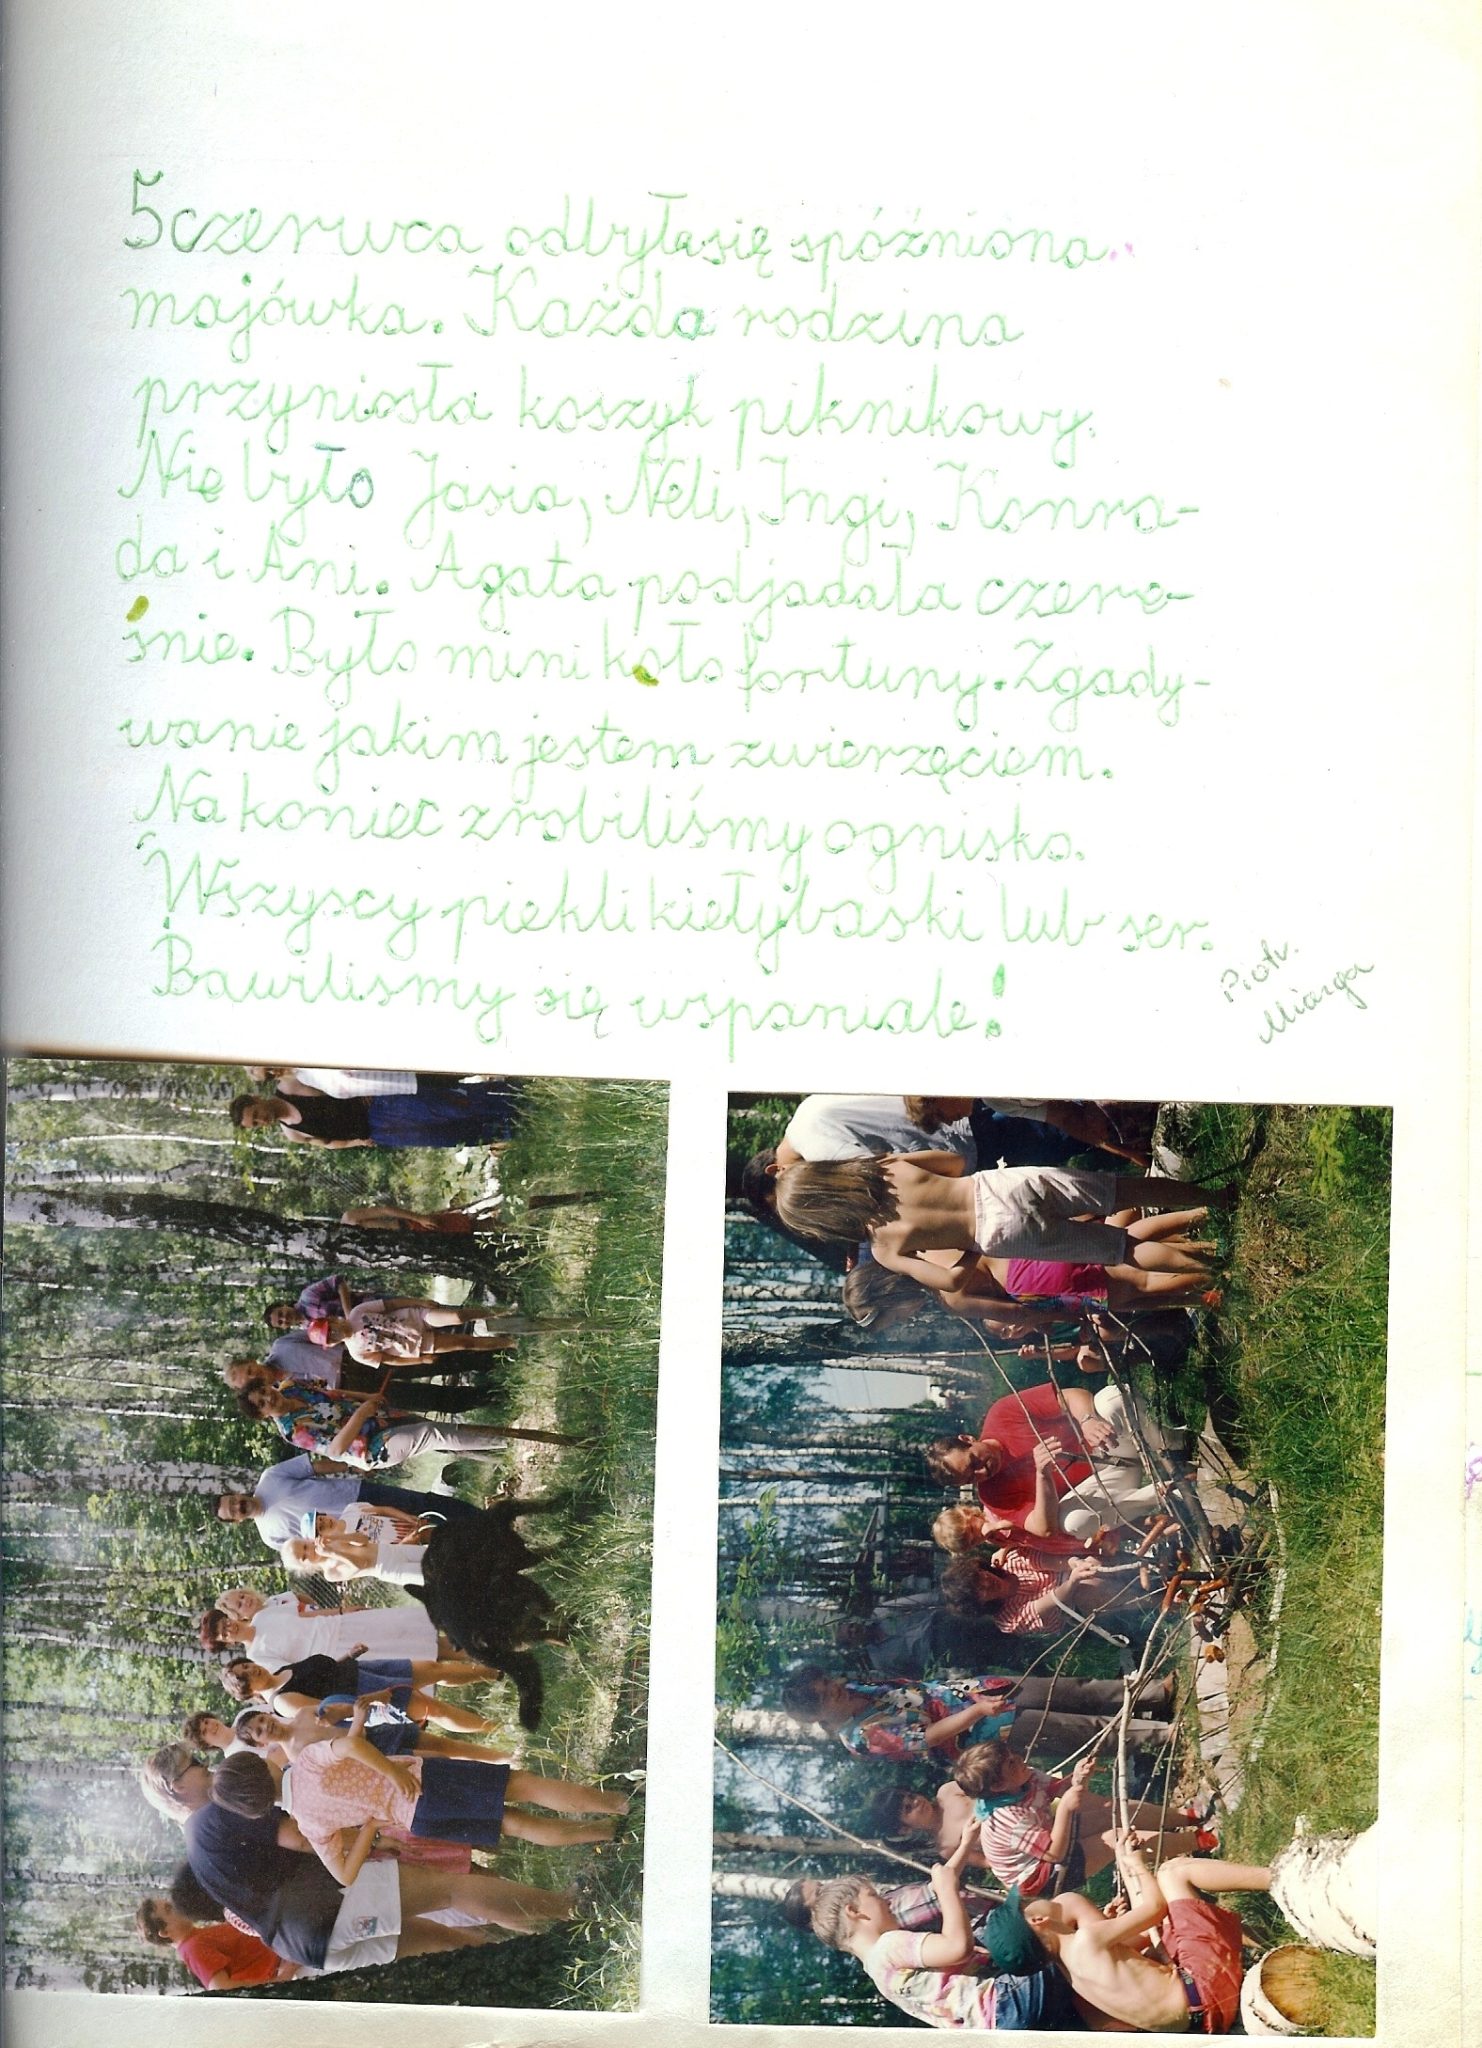 5 czerwca odbyła się spóźniona
majówka. Każda rodzina
przyniosła koszyk piknikowy.
Nie było Jasia, Neli, Ingi, Konra-
da i Ani. Agata podjadała czere-
śnie. Było mini koło fortuny. Zgady-
wanie jakim jestem zwierzęciem.
Na koniec zrobiliśmy ognisko.
Wszyscy piekli kiełybaski lub ser.
Bawiliśmy się wspaniale!
Piotr.
Miazga